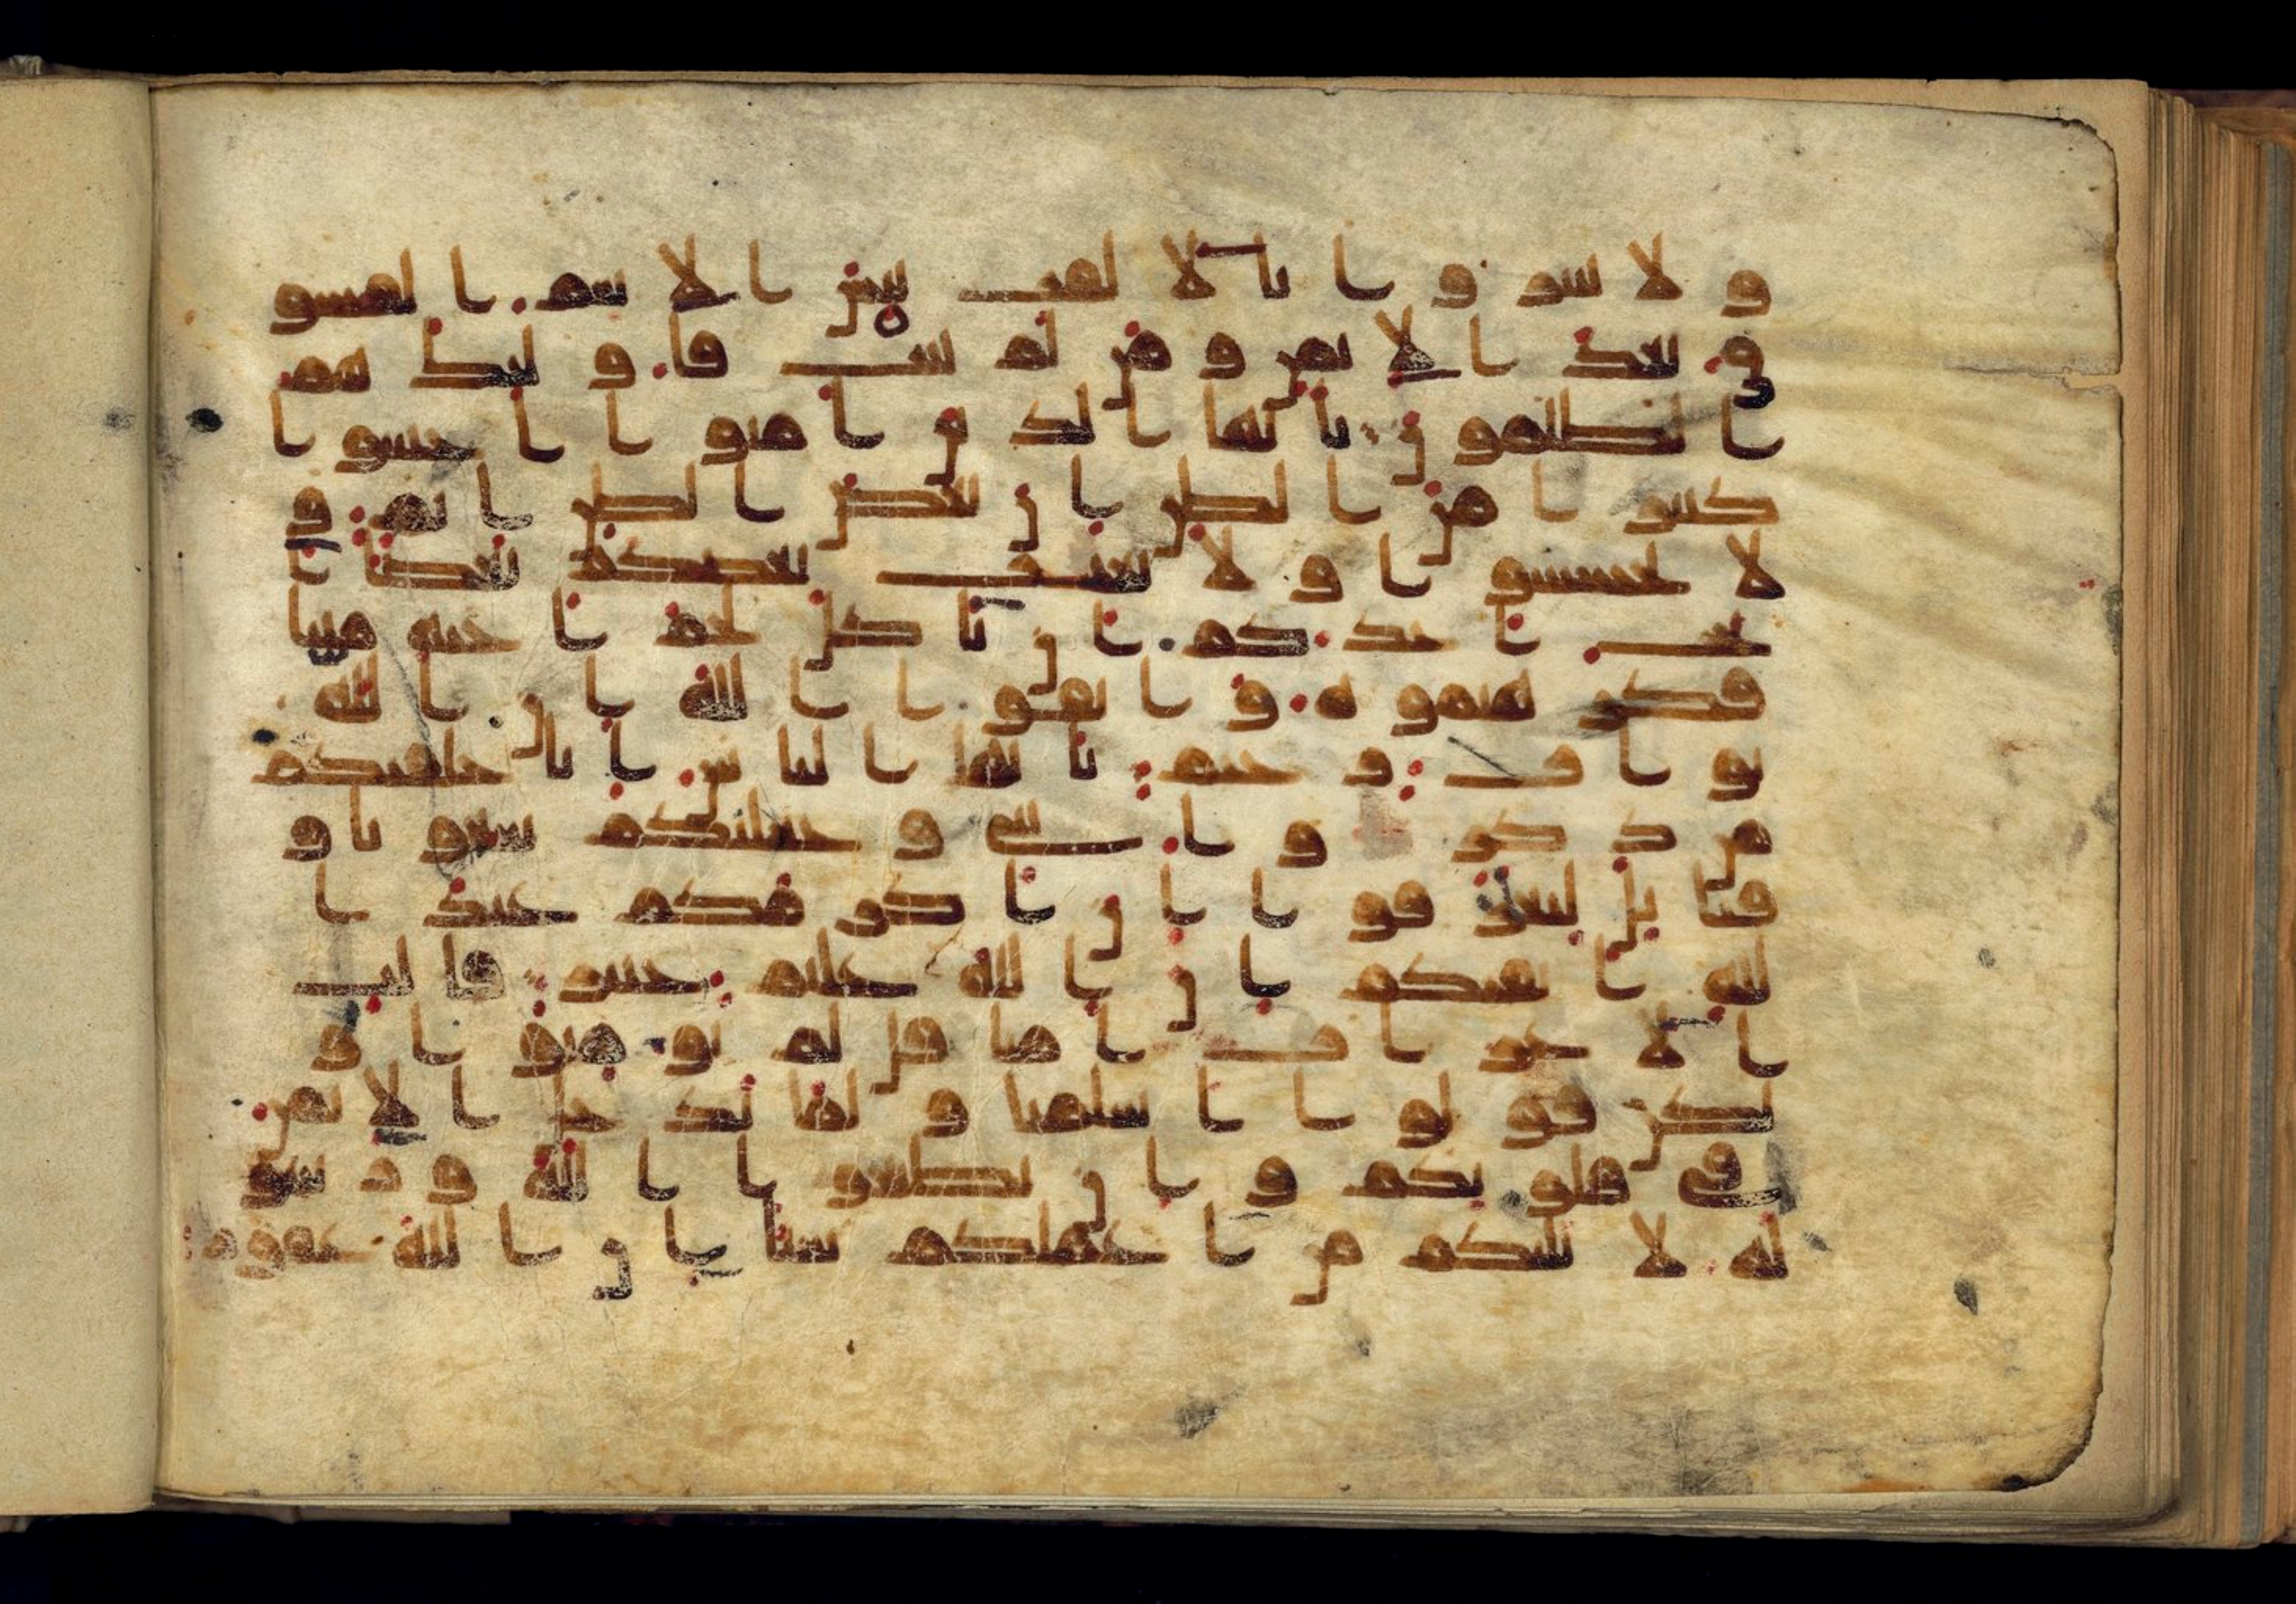 و لا تنابزوا بالالقب بئس الاسم الفسو
ق بعد الايمن ومن لم يتب فاولئك هم
الظلمون يايها الذين امنوا اجتنبوا
كثيرا من الظن ان بعض الظن اثم و
لا تجسسوا ولا يغتب بعضكم بعضا ا
يحب احدكم ان ياكل لحم اخيه ميتا
فكرهتموه واتقوا الله ان الله
تواب رحيم يايها الناس انا خلقنكم
من ذكر وانثى وجعلنكم شعوبا و
قبائل لتعرفوا ان اكرمكم عند ا
لله اتقيكم ان الله عليم خبير قالت
الاعراب امنا قل لم تومنوا و
لكن قولوا اسلمنا ولما يدخل الايمن
في قلوبكم وان تطيعوا الله ورسو
له لا يلتكم من اعملكم شيا ان الله غفور